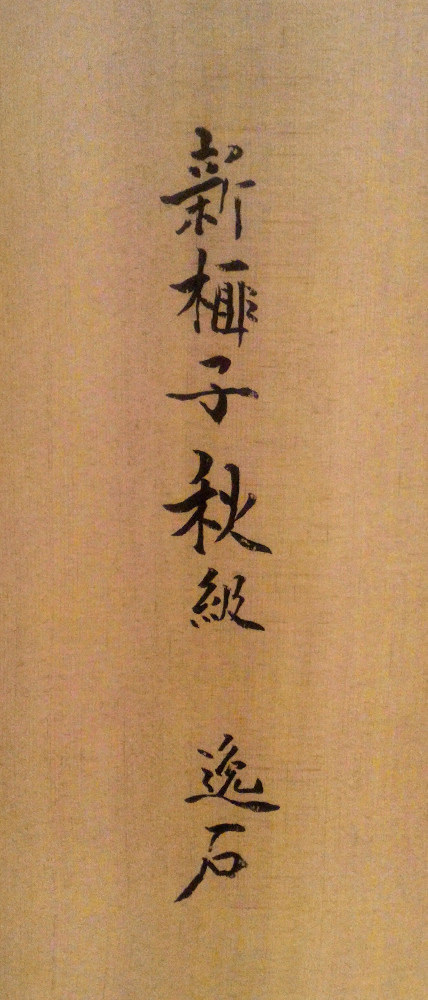 新榧子秋級 逸石